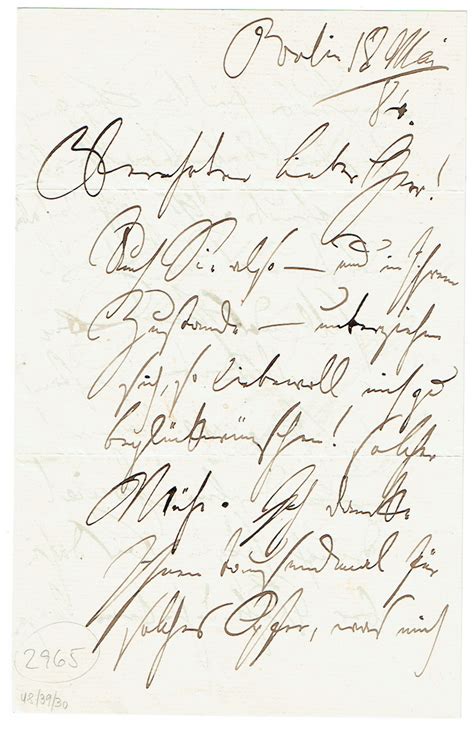 Berlin 18 Mai
84.
Verehrter lieber Herr!
Auch Sie also – und in Ihrem
Zustande – unterziehen
sich, so liebevoll mich zu
beglückwünschen! solcher
Mühe. Ich danke
Ihnen tausendmal für
solches Opfer, was mich
2965
48/39/30